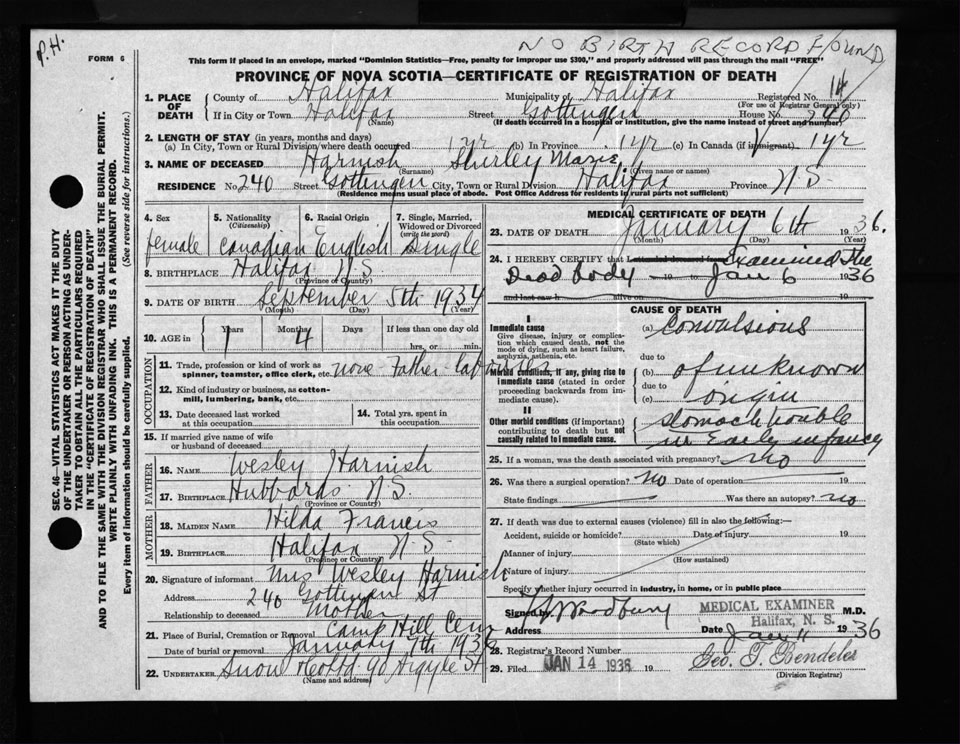 P.H.
NO BIRTH RECORD FOUND
FORM 6
This form if placed in an envelope, marked "Dominion Statistics—Free, penalty for improper use $300," and properly addressed will pass through the mail "FREE"
PROVINCE OF NOVA SCOTIA—CERTIFICATE OF REGISTRATION OF DEATH
1. PLACE OF DEATH County of Halifax Municipality of Halifax Registered No. 14
(For use of Registrar General only)
If in City or Town Halifax Street Gottingen House No. 240
(Name) (If death occurred in a hospital or institution, give the name instead of street and number)
2. LENGTH OF STAY (in years, months and days)
(a) In City, Town or Rural Division where death occurred 1 yr (b) In Province 1 yr (c) In Canada (if immigrant) 1 yr
3. NAME OF DECEASED Harnish Shirley Marie
(Surname) (Given name or names)
RESIDENCE No 240 Street Gottingen City, Town or Rural Division Halifax Province N.S.
(Residence means usual place of abode. Post Office Address for residents in rural parts not sufficient)
4. Sex female
5. Nationality (Citizenship) Canadian
6. Racial Origin English
7. Single, Married, Widowed or Divorced (write the word) Single
8. BIRTHPLACE Halifax N.S.
(Province or Country)
9. DATE OF BIRTH September 5th 1934
(Month) (Day) (Year)
10. AGE in Years 1 Months 4 Days If less than one day old hrs. or min.
OCCUPATION
11. Trade, profession or kind of work as spinner, teamster, office clerk, etc. none - Father - labourer
12. Kind of industry or business, as cotton-mill, lumbering, bank, etc.
13. Date deceased last worked at this occupation
14. Total yrs. spent in this occupation
15. If married give name of wife or husband of deceased
FATHER
16. NAME Wesley Harnish
17. BIRTHPLACE Hubbards N.S.
(Province or Country)
MOTHER
18. MAIDEN NAME Hilda Francis
19. BIRTHPLACE Halifax N.S.
(Province or Country)
20. Signature of informant Mrs Wesley Harnish
Address 240 Gottingen St
Relationship to deceased Mother
21. Place of Burial, Cremation or Removal Camp Hill Cem
Date of burial or removal January 7th 1936
22. UNDERTAKER Snow & Co Ltd 90 Argyle St
(Name and address)
MEDICAL CERTIFICATE OF DEATH
23. DATE OF DEATH January 6th 1936.
(Month) (Day) (Year)
24. I HEREBY CERTIFY that I attended deceased from Examined the
Dead body - 19 - to Jan 6 1936
and last saw h alive on 19
CAUSE OF DEATH
I
Immediate cause
Give disease, injury or complication which caused death, not the mode of dying, such as heart failure, asphyxia, asthenia, etc.
(a) Convulsions
due to
Morbid conditions, if any, giving rise to immediate cause (stated in order proceeding backwards from immediate cause).
(b) of unknown
due to
(c) origin
II
Other morbid conditions (if important) contributing to death but not causally related to immediate cause.
Stomach trouble
in Early infancy
25. If a woman, was the death associated with pregnancy? No
26. Was there a surgical operation? No Date of operation 19
State findings Was there an autopsy? no
27. If death was due to external causes (violence) fill in also the following:—
Accident, suicide or homicide? Date of injury 19
(State which)
Manner of injury
(How sustained)
Nature of injury
Specify whether injury occurred in industry, in home, or in public place
Signed by Woodbury M.D.
MEDICAL EXAMINER
Halifax, N. S.
Address Date Jan 11 1936
28. Registrar's Record Number
29. Filed JAN 14 1936 19 Geo. T. Bendeler
(Division Registrar)
SEC. 46—VITAL STATISTICS ACT MAKES IT THE DUTY
OF THE UNDERTAKER OR PERSON ACTING AS UNDER-
TAKER TO OBTAIN ALL THE PARTICULARS REQUIRED
IN THE "CERTIFICATE OF REGISTRATION OF DEATH"
AND TO FILE THE SAME WITH THE DIVISION REGISTRAR WHO SHALL ISSUE THE BURIAL PERMIT.
WRITE PLAINLY WITH UNFADING INK. THIS IS A PERMANENT RECORD.
Every item of Information should be carefully supplied. (See reverse side for instructions.)